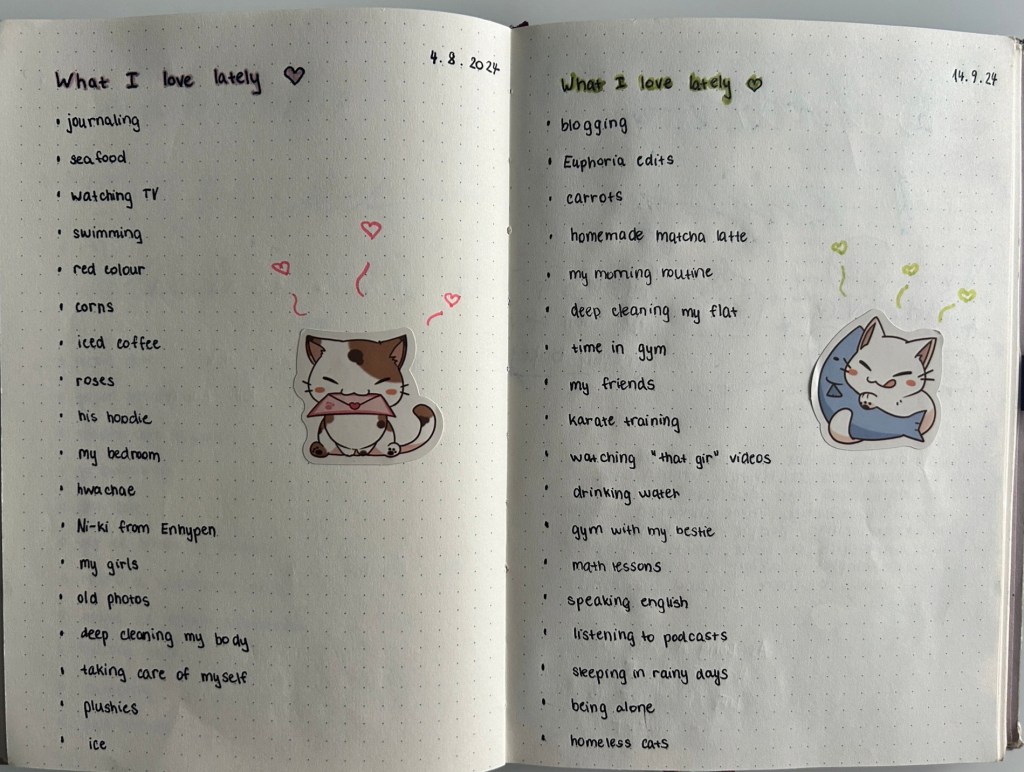 4.8.2024
What I love lately
• journaling
• seafood
• watching TV
• swimming
• red colour
• corns
• iced coffee
• roses
• his hoodie
• my bedroom
• hwachae
• Ni-ki from Enhypen
• my girls
• old photos
• deep cleaning my body
• taking care of myself
• plushies
• ice
14.9.24
What I love lately
• blogging
• Euphoria edits
• carrots
• homemade matcha latte
• my morning routine
• deep cleaning my flat
• time in gym
• my friends
• karate training
• watching "that gir" videos
• drinking water
• gym with my bestie
• math lessons
• speaking english
• listening to podcasts
• sleeping in rainy days
• being alone
• homeless cats